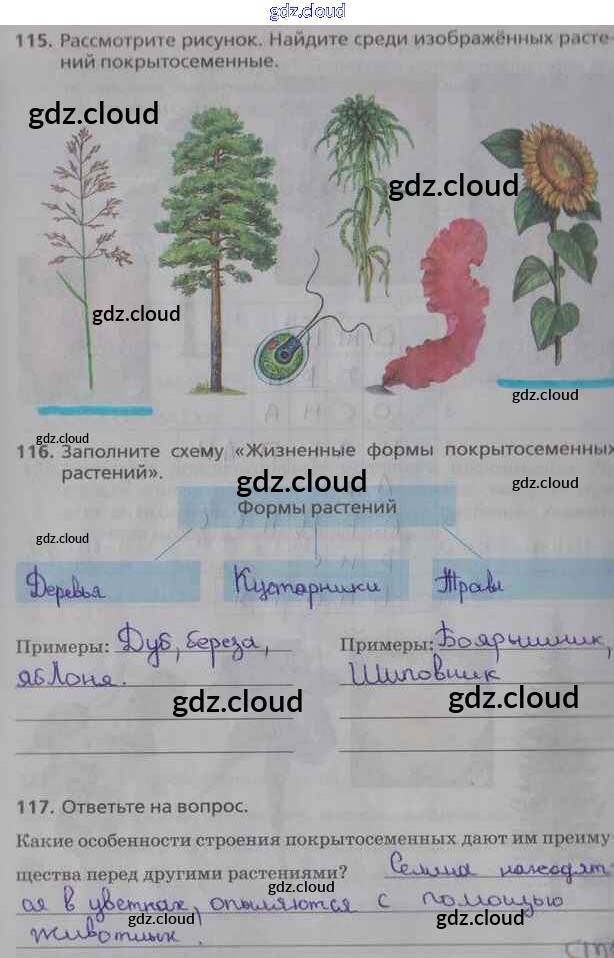 gdz.cloud
115. Рассмотрите рисунок. Найдите среди изображённых расте-
ний покрытосеменные.
gdz.cloud
gdz.cloud
gdz.cloud
gdz.cloud
gdz.cloud
116. Заполните схему «Жизненные формы покрытосеменных
растений».
gdz.cloud
gdz.cloud
Формы растений
gdz.cloud
Деревья Кустарники Травы
Примеры: Дуб, береза,
яблоня.
Примеры: Боярышник,
Шиповник
gdz.cloud
gdz.cloud
117. Ответьте на вопрос.
Какие особенности строения покрытосеменных дают им преиму-
щества перед другими растениями? Семена находят-
gdz.cloud
ся в цветках, опыляются с помощью
gdz.cloud
gdz.cloud
животных.